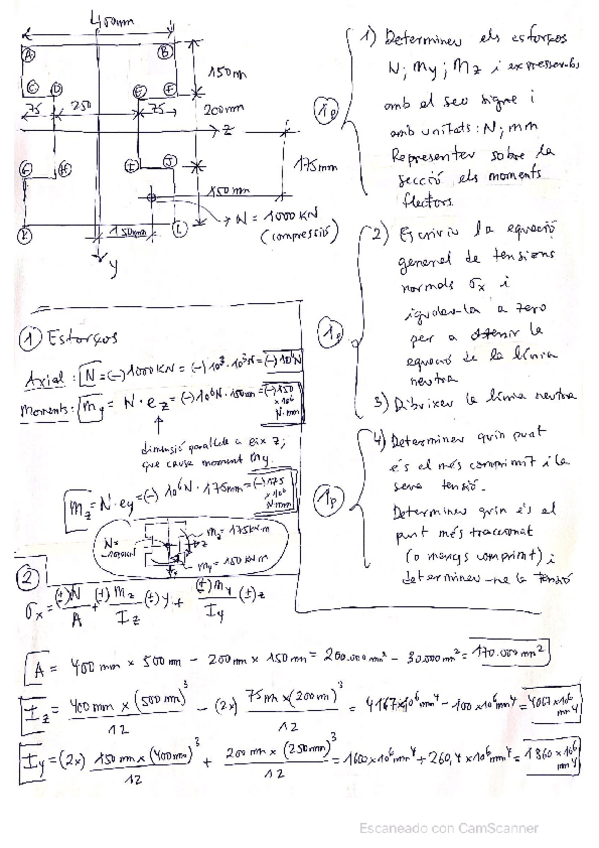 400mm
A
B
150mm
C
D
E
F
75
250
75
200mm
z
G
H
I
J
175mm
150mm
150mm
N = 1000 KN
(compressió)
K
L
y
1) Determineu els esforços
N; My; Mz i expresseu-los
amb el seu signe i
amb unitats: N; mm
Representeu sobre la
secció els moments
flectors.
1p
2) Escriviu la equació
general de tensions
normals σx i
igualeu-la a zero
per a obtenir la
equació de la línia
neutra
1p
3) Dibuixeu la línia neutra
4) Determineu quin punt
és el més comprimit i la
seva tensió.
Determineu quin és el
punt més traccionat
(o menys comprimit) i
determineu-ne la tensió
1p
1 Esforços
Axial: N = (-) 1000 KN = (-) 10³·10³N = (-) 10⁶N
Moments: My = N · ez = (-) 10⁶N · 150mm = (-) 150 x 10⁶ N·mm
dimensió paral·lela a eix z;
que causa moment My.
Mz = N · ey = (-) 10⁶N · 175mm = (-) 175 x 10⁶ N·mm
N = 1000KN
Mz = 175KN·m
z
My = 150KN·m
2
σx = (±)N/A + (±)Mz/Iz (±) y + (±)My/Iy (±) z
A = 400 mm x 500 mm - 200 mm x 150 mm = 200.000 mm² - 30.000 mm² = 170.000 mm²
Iz = 400 mm x (500 mm)³/12 - (2x) 75 mm x (200 mm)³/12 = 4167x10⁶mm⁴ - 100x10⁶mm⁴ = 4067x10⁶ mm⁴
Iy = (2x) 150 mm x (400 mm)³/12 + 200 mm x (250 mm)³/12 = 1600x10⁶mm⁴ + 260,4x10⁶mm⁴ = 1860x10⁶ mm⁴
Escaneado con CamScanner